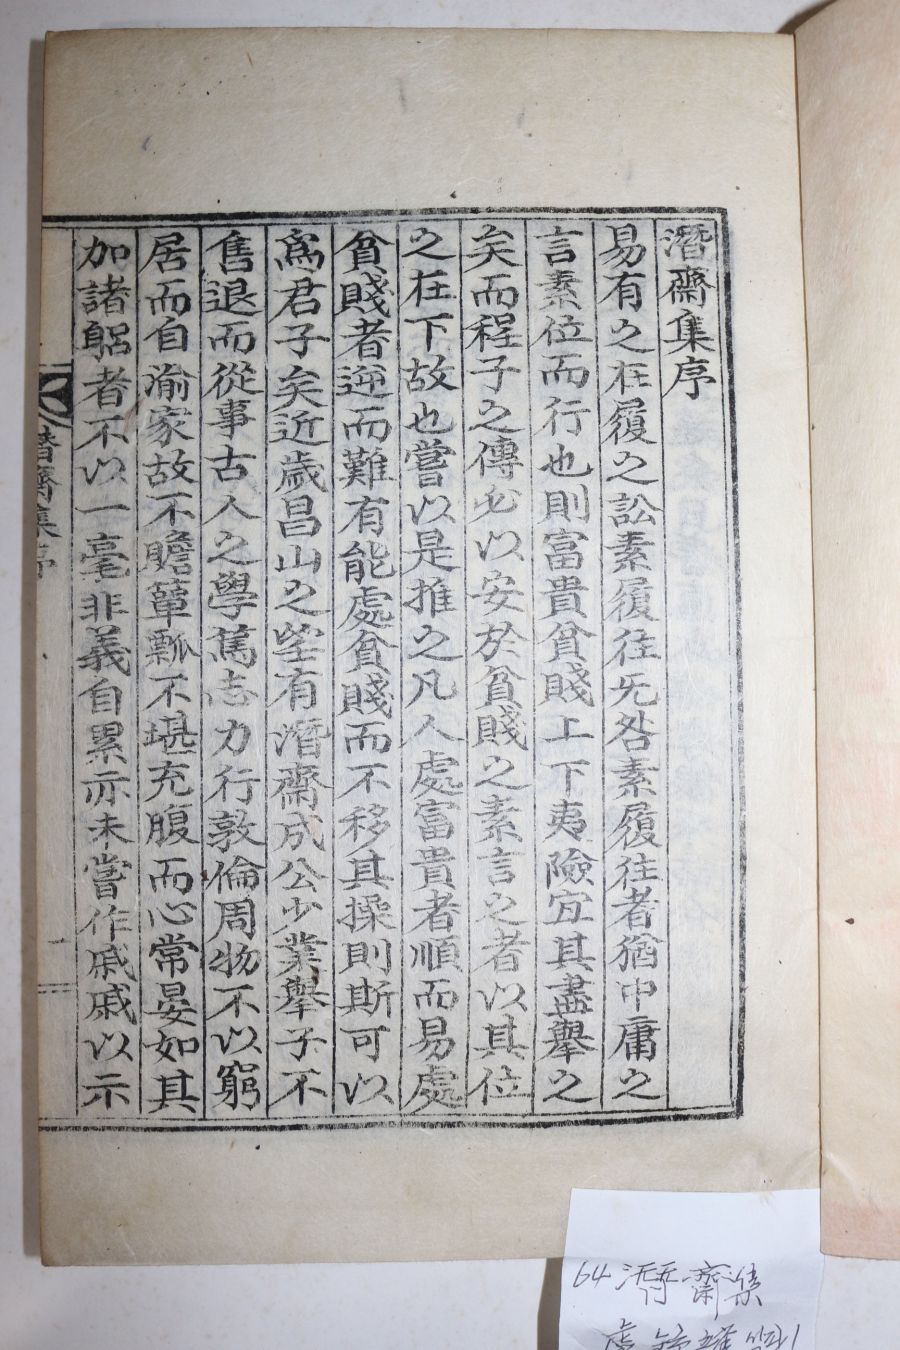 潛齋集序
易有之在履之訟素履往旡咎素履往者猶中庸之
言素位而行也則富貴貧賤上下夷險宜其盡擧之
矣而程子之傳必以安於貧賤之素言之者以其位
之在下故也嘗以是推之凡人處富貴者順而易處
貧賤者逆而難有能處貧賤而不移其操則斯可以
爲君子矣近歲昌山之望有潛齋成公少業擧子不
售退而從事古人之學篤志力行敦倫周物不以窮
居而自渝家故不贍簞瓢不堪充腹而心常晏如其
加諸躬者不以一毫非義自累亦未嘗作戚戚以示
潛齋集序
64 潛齋集